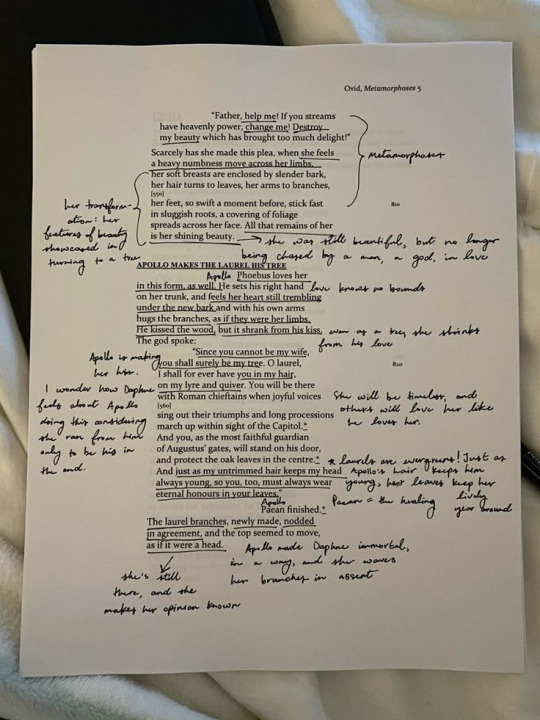 Ovid, Metamorphoses 5
"Father, help me! If you streams
have heavenly power, change me! Destroy
my beauty which has brought too much delight!"
Metamorphoses
Scarcely has she made this plea, when she feels
a heavy numbness move across her limbs,
her soft breasts are enclosed by slender bark,
her hair turns to leaves, her arms to branches,
[550]
her feet, so swift a moment before, stick fast
810
in sluggish roots, a covering of foliage
spreads across her face. All that remains of her
is her shining beauty.
her transform-
ation: her
features of beauty
showcased in
turning to a tree
she was still beautiful, but no longer
being chased by a man, a god, in love
APOLLO MAKES THE LAUREL HIS TREE
Apollo
Phoebus loves her
in this form, as well. He sets his right hand
love knows no bounds
on her trunk, and feels her heart still trembling
under the new bark and with his own arms
hugs the branches, as if they were her limbs.
He kissed the wood, but it shrank from his kiss,
even as a tree, she shrinks
from his love
The god spoke:
"Since you cannot be my wife,
you shall surely be my tree. O laurel,
820
I shall for ever have you in my hair,
on my lyre and quiver. You will be there
with Roman chieftains when joyful voices
[560]
sing out their triumphs and long processions
march up within sight of the Capitol.*
And you, as the most faithful guardian
of Augustus' gates, will stand on his door,
and protect the oak leaves in the centre.*
And just as my untrimmed hair keeps my head
always young, so you, too, must always wear
eternal honours in your leaves."
Apollo is making
her his.
I wonder how Daphne
feels about Apollo
doing this considering
she ran from him
only to be his in
the end.
She will be timeless, and
others will love her like
he loves her.
* laurels are evergreens! Just as
Apollo's hair keeps him
young, her leaves keep her
lively
year around
Apollo
Paean finished.*
Paean = the healing
The laurel branches, newly made, nodded
in agreement, and the top seemed to move,
as if it were a head.
Apollo made Daphne immortal,
in a way, and she waves
her branches in assent
she's still
there, and she
makes her opinion known